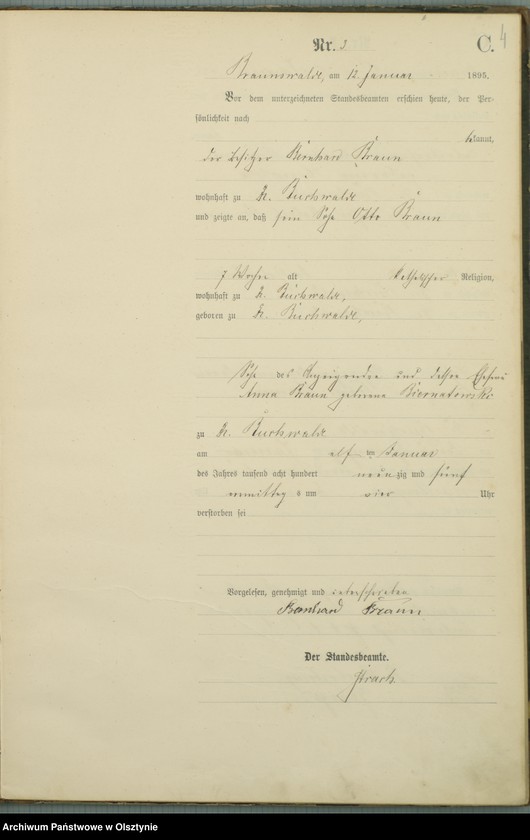 4
Nr. 3 C.
Braunswalde, am 12 Januar 1895.
Vor dem unterzeichneten Standesbeamten erschien heute, der Per-
sönlichkeit nach
kannt,
der Besitzer Bernhard Braun
wohnhaft zu Kl. Buchwalde
und zeigte an, daß sein Sohn Otto Braun
7 Wochen alt katholischer Religion,
wohnhaft zu Kl. Buchwalde,
geboren zu Kl. Buchwalde,
Sohn des Anzeigenden und dessen Ehefrau
Anna Braun geborene Biernatowski
zu Kl. Buchwalde
am elf ten Januar
des Jahres tausend acht hundert neun zig und fünf
vormittags um vier Uhr
verstorben sei
Vorgelesen, genehmigt und unterschrieben
Bernhard Braun
Der Standesbeamte.
Archiwum Państwowe w Olsztynie